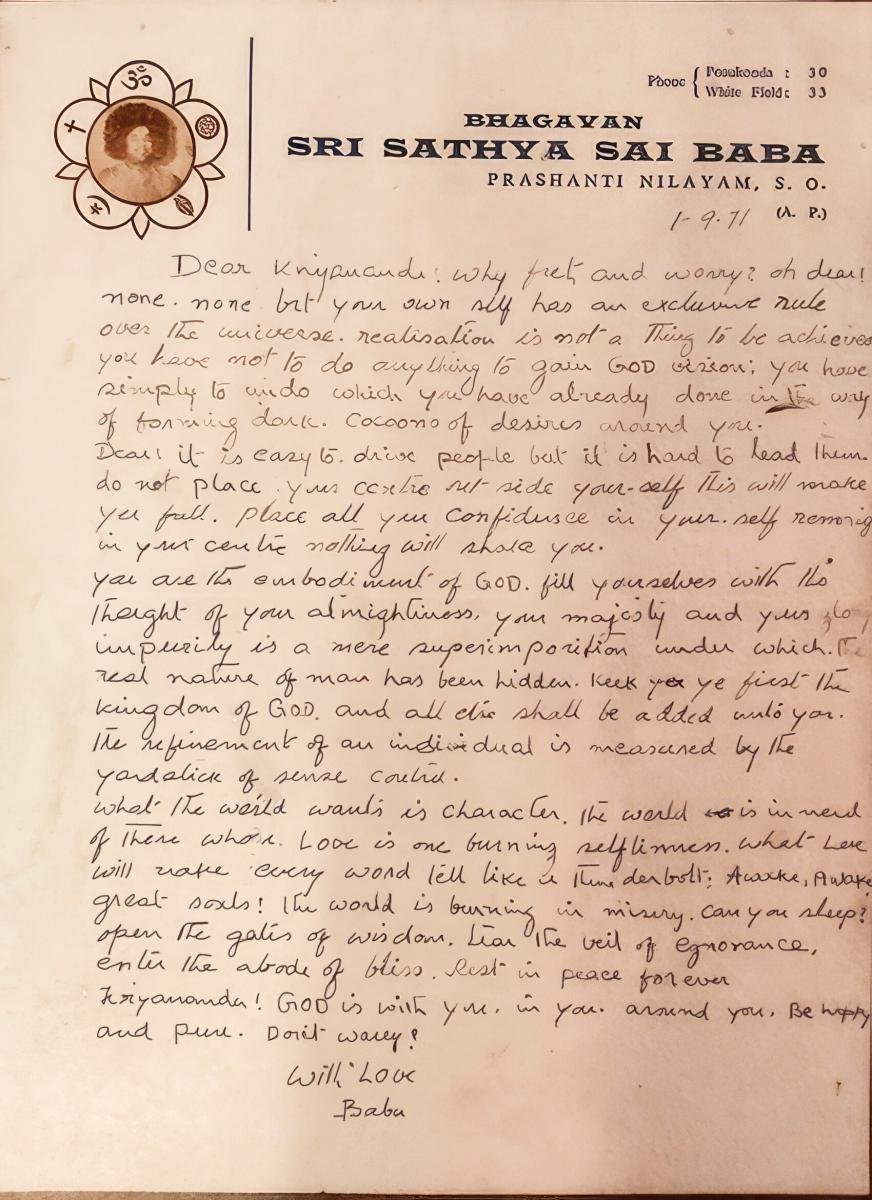 ॐ
Phone { Penukonda : 30
White Field : 33
BHAGAVAN
SRI SATHYA SAI BABA
PRASHANTI NILAYAM, S. O.
1-9-71 (A. P.)
Dear Kriyananda! why fret and worry? oh dear!
none. none but your own self has an exclusive rule
over the universe. realisation is not a Thing to be achieved
you have not to do anything to gain GOD vision; you have
simply to undo which you have already done in the way
of forming dark. cocoons of desires around you.
Dear! it is easy to. drive people but it is hard to lead them.
do not place your centre out side your-self this will make
you fall. place all your confidence in your. self
in your centre nothing will shake you.
you are the embodiment of GOD. fill yourselves with the
thought of your almightiness, your majesty and your glory
impurity is a mere superimposition under which. the
real nature of man has been hidden. ye first the
kingdom of GOD. and all else shall be added unto you.
The refinement of an individual is measured by the
yardstick of sense control.
what the world wants is character. the world is in need
of those whose. Love is one burning selflinness. what Love
will make every word tell like a thunderbolt; Awake, Awake
great souls! the world is burning in misery. can you sleep?
open the gates of wisdom. tear the veil of egnorance,
enter the abode of bliss. Rest in peace for ever
Kriyananda! GOD is with you. in you. around you. Be happy
and pure. Don't worry?
With Love
Baba